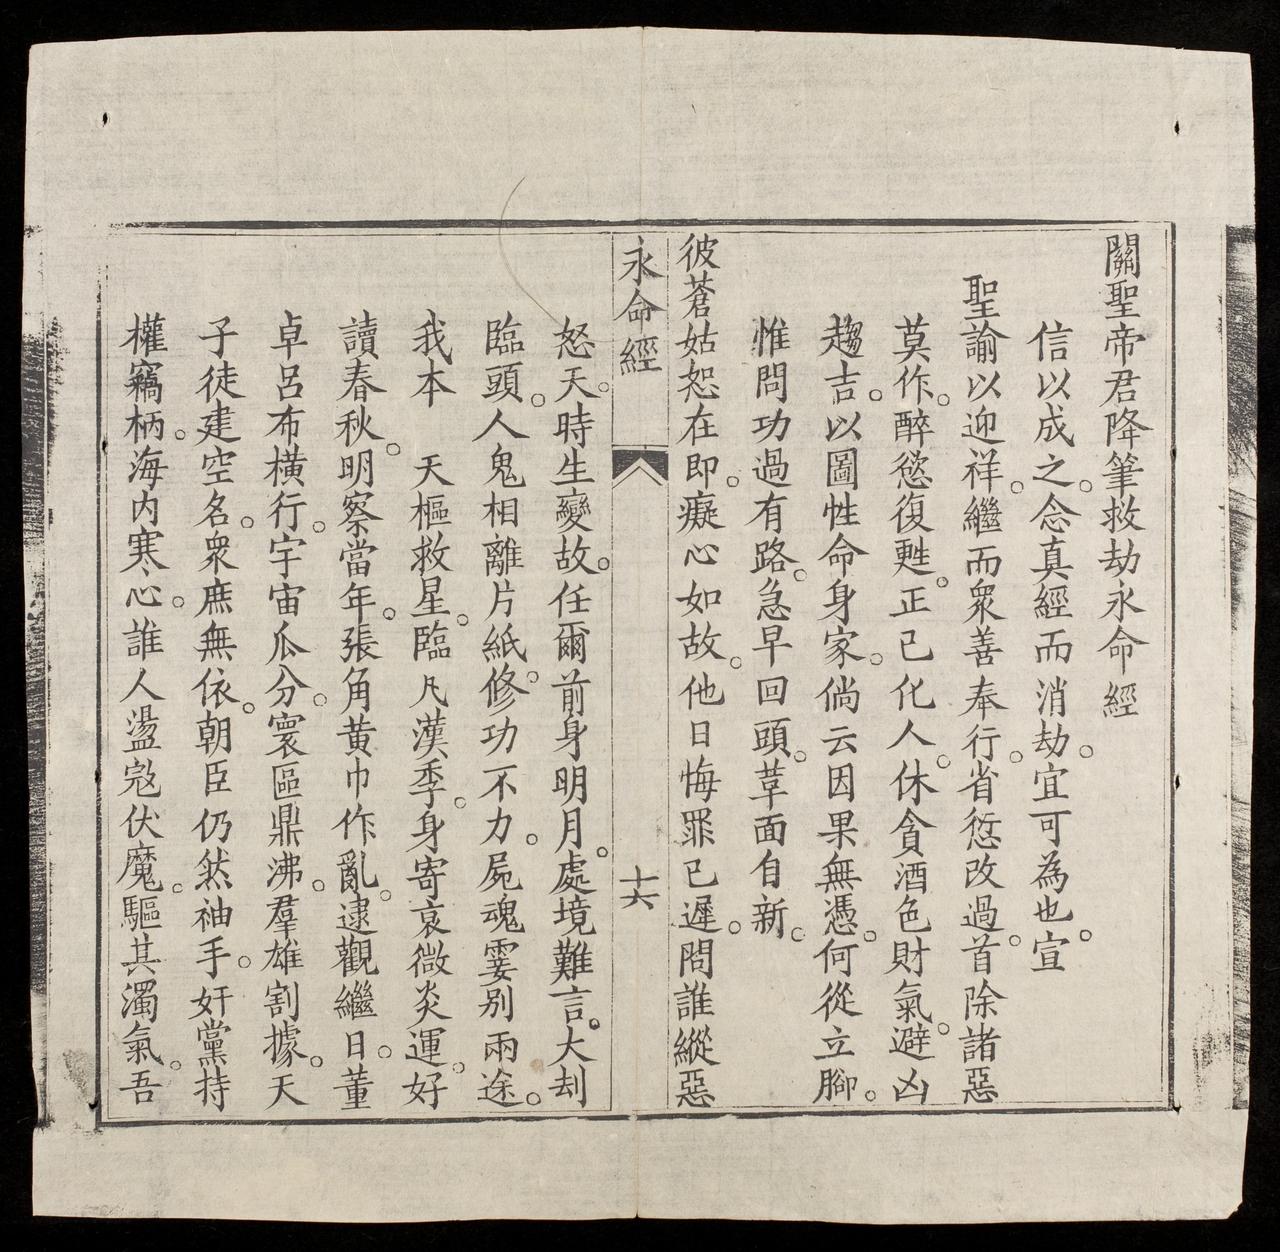 關聖帝君降筆救劫永命經
信以成之。念真經而消劫。宜可為也。宣
聖諭以迎祥。繼而眾善奉行。省愆改過。首除諸惡
莫作。醉慾復甦。正已化人。休貪酒色財氣。避凶
趨吉。以圖性命身家。倘云因果無憑。何從立腳。
惟問功過有路。急早回頭。革面自新。
彼蒼姑恕在即。癡心如故。他日悔罪已遲。問誰縱惡
永命經
十六
怒天。時生變故。任爾前身明月。處境難言。大刦
臨頭。人鬼相離片紙。修功不力。屍魂霎別兩途。
我本 天樞救星。臨凡漢季。身寄哀微炎運。好
讀春秋。明察當年。張角黃巾作亂。逮觀繼日。董
卓呂布橫行。宇宙瓜分。寰區鼎沸。羣雄割據。天
子徒建空名。眾庶無依。朝臣仍然袖手。奸黨持
權竊柄。海內寒心。誰人盪寇伏魔。驅其濁氣。吾